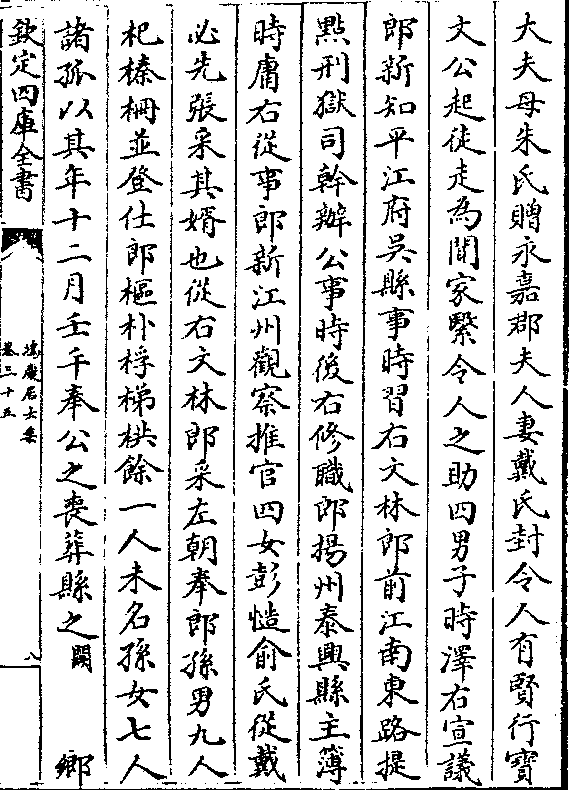 大夫母朱氏贈永嘉郡夫人妻戴氏封令人有賢行寶
文公起徒走為聞家繄令人之助四男子時澤右宣議
郎新知平江府吳縣事時習右文林郎前江南東路提
點刑獄司幹辦公事時俊右修職郎揚州泰興縣主簿
時庸右從事郎新江州觀察推官四女彭慥俞氏從戴
必先張采其婿也從右文林郎采左朝奉郎孫男九人
杞榛柵並登仕郎樞朴桴梯栱餘一人未名孫女七人
諸孤以其年十二月壬午奉公之喪葬縣之闕 鄉
欽定四庫全書
鴻慶居士集
卷三十五
八